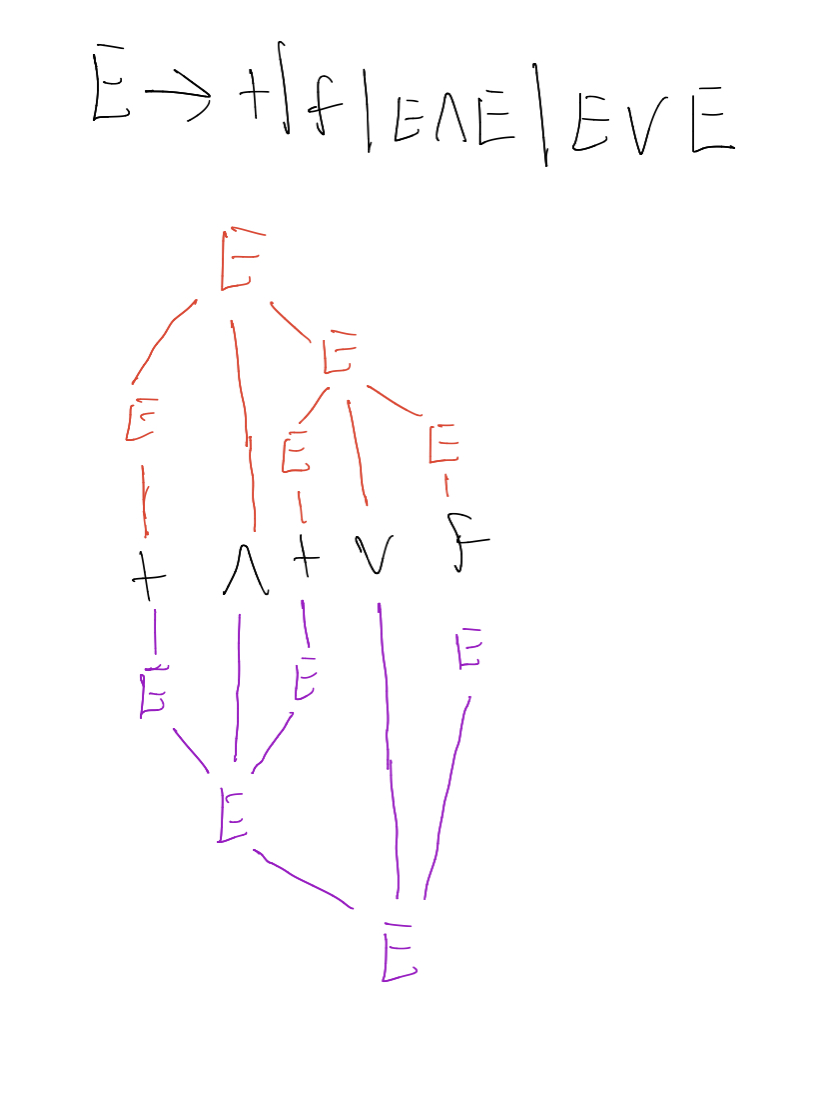 E → t | f | E ∧ E | E ∨ E
E
E
E
E E
t ∧ t ∨ f
E E E
E
E